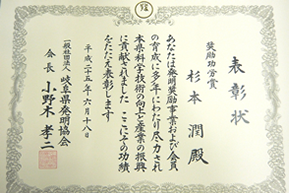 表彰状
奨励功労賞
杉本 潤 殿
あなたは発明奨励事業および会員
の育成に多年にわたり尽力され
本県科学技術の向上と産業の振興
に貢献されました ここにその功績
をたたえ表彰します
平成二十五年六月十八日
一般社団法人 岐阜県発明協会
会長 小野木 孝二